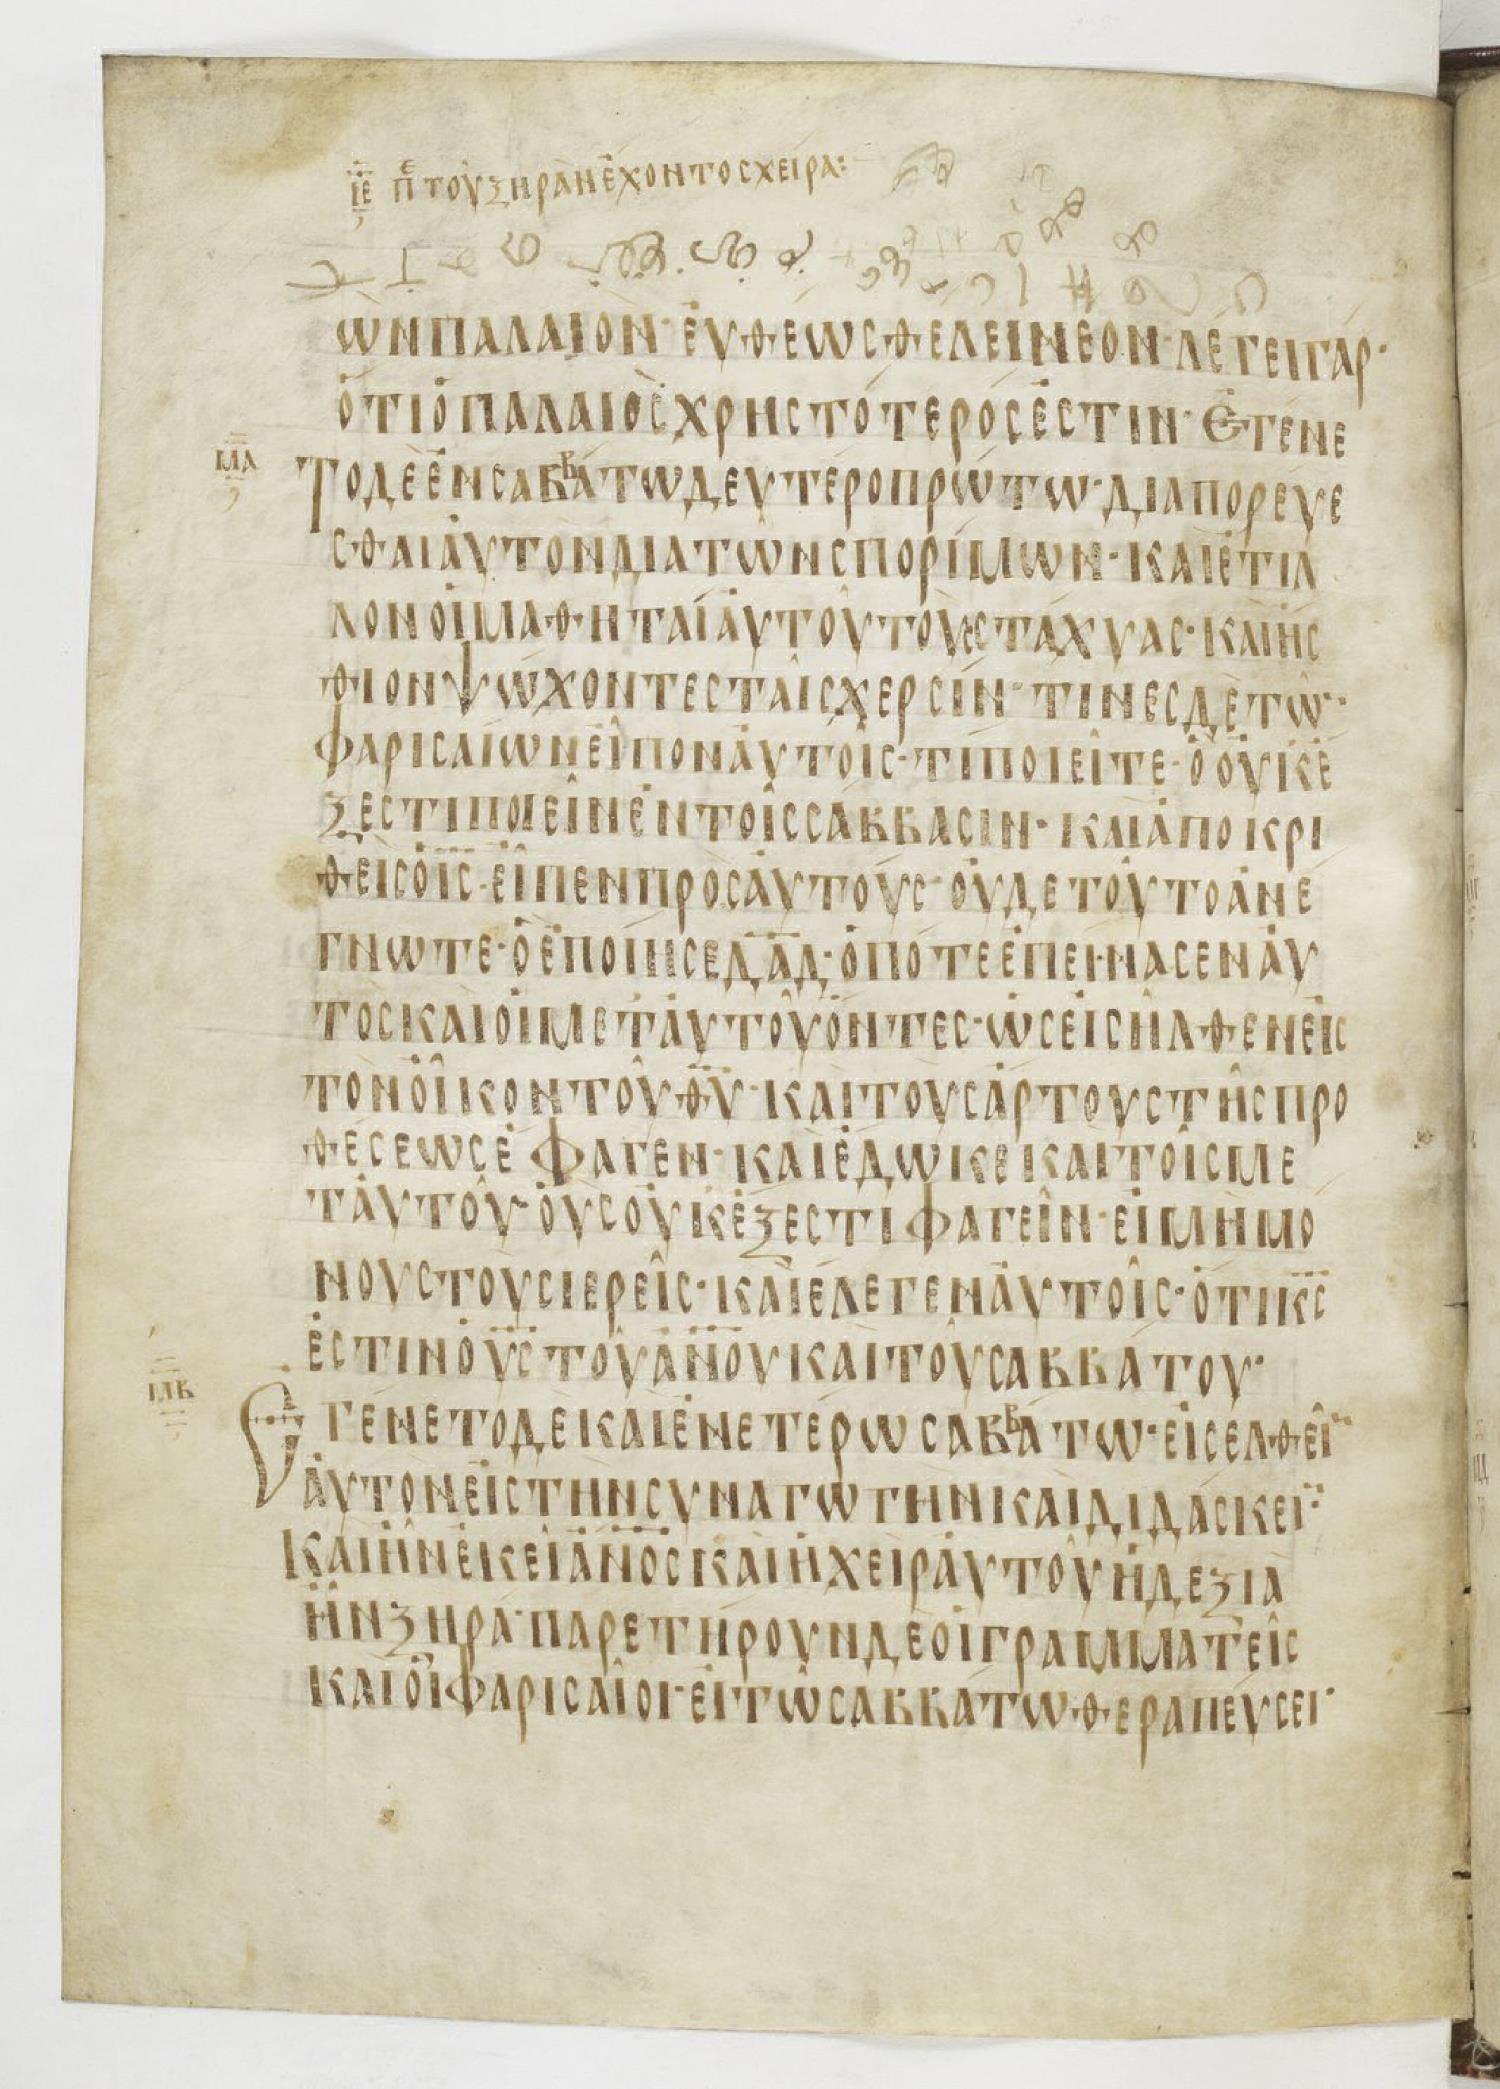 ΙΕ Πε ΤΟΥ ΞΗΡΑΝ ΕΧΟΝΤΟΣ ΧΕΙΡΑ:
ΩΝ ΠΑΛΑΙΟΝ· ΕΥΘΕΩΣ ΘΕΛΕΙ ΝΕΟΝ· ΛΕΓΕΙ ΓΑΡ·
ΟΤΙ Ο ΠΑΛΑΙΟΣ ΧΡΗΣΤΟΤΕΡΟΣ ΕΣΤΙΝ· ΕΓΕΝΕ
ΜΑ ΤΟ ΔΕ ΕΝ ΣΑΒΒΑΤΩ ΔΕΥΤΕΡΟΠΡΩΤΩ· ΔΙΑΠΟΡΕΥΕ
ΣΘΑΙ ΑΥΤΟΝ ΔΙΑ ΤΩΝ ΣΠΟΡΙΜΩΝ· ΚΑΙ ΕΤΙΛ
ΛΟΝ ΟΙ ΜΑΘΗΤΑΙ ΑΥΤΟΥ ΤΟΥΣ ΣΤΑΧΥΑΣ· ΚΑΙ ΗΣ
ΘΙΟΝ ΨΩΧΟΝΤΕΣ ΤΑΙΣ ΧΕΡΣΙΝ· ΤΙΝΕΣ ΔΕ ΤΩ·
ΦΑΡΙΣΑΙΩΝ ΕΙΠΟΝ ΑΥΤΟΙΣ· ΤΙ ΠΟΙΕΙΤΕ· Ο ΟΥΚ Ε
ΞΕΣΤΙ ΠΟΙΕΙΝ ΕΝ ΤΟΙΣ ΣΑΒΒΑΣΙΝ· ΚΑΙ ΑΠΟΚΡΙ
ΘΕΙΣ Ο ΙΣ· ΕΙΠΕΝ ΠΡΟΣ ΑΥΤΟΥΣ· ΟΥΔΕ ΤΟΥΤΟ ΑΝΕ
ΓΝΩΤΕ· Ο ΕΠΟΙΗΣΕ ΔΑΔ· ΟΠΟΤΕ ΕΠΕΙΝΑΣΕΝ ΑΥ
ΤΟΣ ΚΑΙ ΟΙ ΜΕΤ ΑΥΤΟΥ ΟΝΤΕΣ· ΩΣ ΕΙΣΗΛΘΕΝ ΕΙΣ
ΤΟΝ ΟΙΚΟΝ ΤΟΥ ΘΥ· ΚΑΙ ΤΟΥΣ ΑΡΤΟΥΣ ΤΗΣ ΠΡΟ
ΘΕΣΕΩΣ ΕΦΑΓΕΝ· ΚΑΙ ΕΔΩΚΕ ΚΑΙ ΤΟΙΣ ΜΕ
Τ ΑΥΤΟΥ· ΟΥΣ ΟΥΚ ΕΞΕΣΤΙ ΦΑΓΕΙΝ· ΕΙ ΜΗ ΜΟ
ΝΟΥΣ ΤΟΥΣ ΙΕΡΕΙΣ· ΚΑΙ ΕΛΕΓΕΝ ΑΥΤΟΙΣ· ΟΤΙ ΚΣ
ΕΣΤΙΝ Ο ΥΣ ΤΟΥ ΑΝΟΥ ΚΑΙ ΤΟΥ ΣΑΒΒΑΤΟΥ·
ΜΒ ΕΓΕΝΕΤΟ ΔΕ ΚΑΙ ΕΝ ΕΤΕΡΩ ΣΑΒΒΑΤΩ· ΕΙΣΕΛΘΕΙ
ΑΥΤΟΝ ΕΙΣ ΤΗΝ ΣΥΝΑΓΩΓΗΝ ΚΑΙ ΔΙΔΑΣΚΕΙ·
ΚΑΙ ΗΝ ΕΚΕΙ ΑΝΟΣ ΚΑΙ Η ΧΕΙΡ ΑΥΤΟΥ Η ΔΕΞΙΑ
ΗΝ ΞΗΡΑ· ΠΑΡΕΤΗΡΟΥΝ ΔΕ ΟΙ ΓΡΑΜΜΑΤΕΙΣ
ΚΑΙ ΟΙ ΦΑΡΙΣΑΙΟΙ· ΕΙ ΤΩ ΣΑΒΒΑΤΩ ΘΕΡΑΠΕΥΣΕΙ·